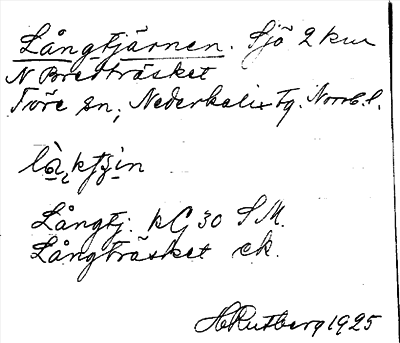 Långtjärnen. Sjö 2 km
N Bredträsket
Töre sn; Nederkalix tg. Norrb. l.
Långtj. kG 30 S M.
Långträsket ek.
H Rutberg 1925